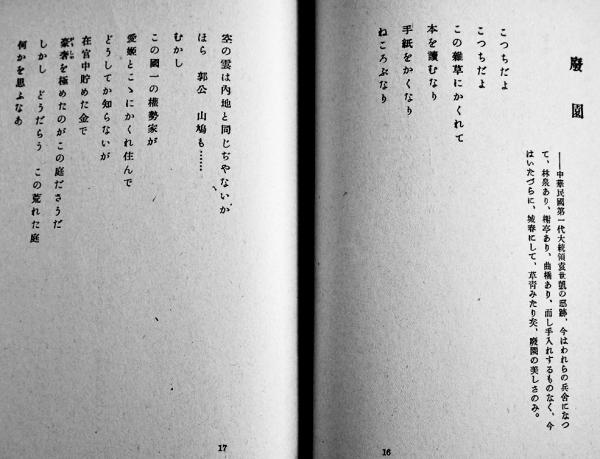 廢園
――中華民國第一代大統領袁世凱の邸跡、今はわれらの兵舍になつ
て、林泉あり、榭亭あり、曲橋あり、而し手入れするものなく、今
はいたづらに、城春にして、草靑みたり矣、廢園の美しさのみ。
こつちだよ
こつちだよ
この雜草にかくれて
本を讀むなり
手紙をかくなり
ねころぶなり
16
空の雲は內地と同じぢやないか
ほら 郭公 山鳩も……
むかし
この國一の權勢家が
愛姬とこゝにかくれ住んで
どうしてか知らないが
在官中貯めた金で
豪奢を極めたのがこの庭ださうだ
しかし どうだらう この荒れた庭
何かを思ふなあ
17